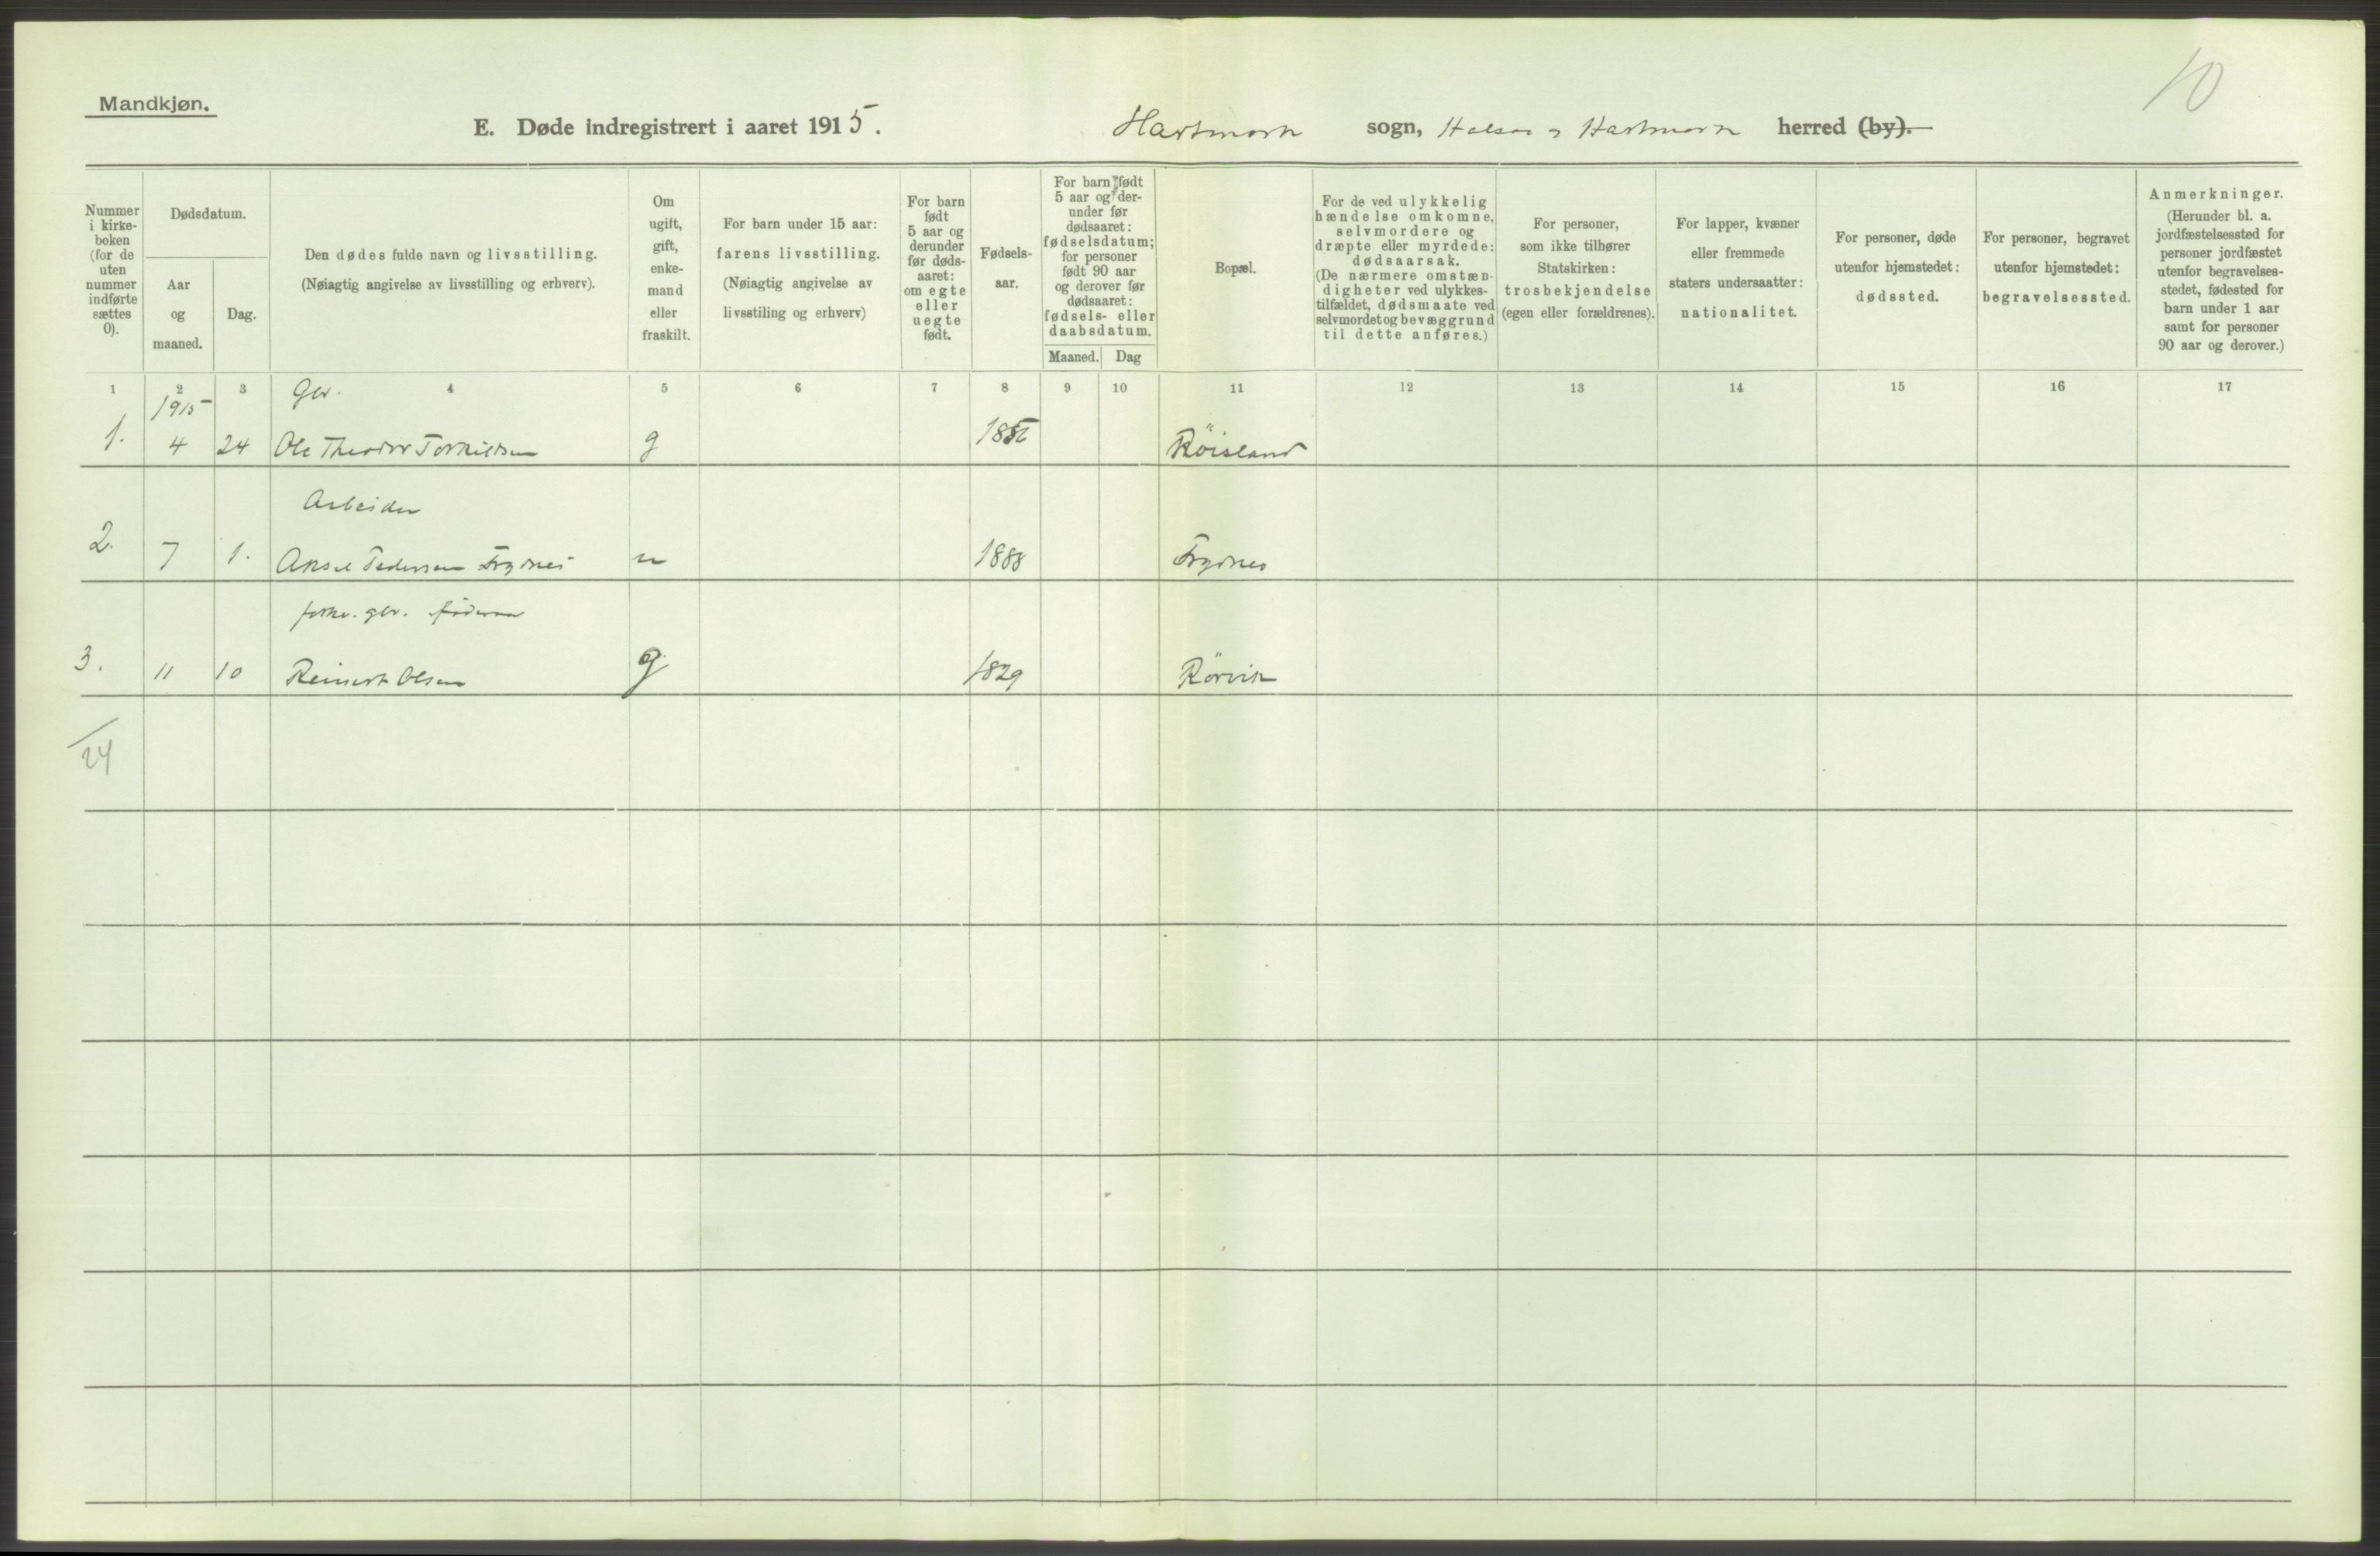 10
Mandkjøn.
E. Døde indregistrert i aaret 1915. Hartmark sogn, Halsaa og Hartmark herred (by).
Nummer i kirkeboken (for de uten nummer indførte sættes 0).
Dødsdatum.
Aar og maaned.
Dag.
Den dødes fulde navn og livsstilling.
(Nøiagtig angivelse av livsstilling og erhverv).
Om ugift, gift, enkemand eller fraskilt.
For barn under 15 aar:
farens livsstilling.
(Nøiagtig angivelse av livsstiling og erhverv)
For barn født 5 aar og derunder før dødsaaret: om egte eller uegte født.
Fødselsaar.
For barn født 5 aar og derunder før dødsaaret: fødselsdatum; for personer født 90 aar og derover før dødsaaret: fødsels- eller daabsdatum.
Maaned. Dag
Bopæl.
For de ved ulykkelig hændelse omkomne, selvmordere og dræpte eller myrdede: dødsaarsak. (De nærmere omstændigheter ved ulykkestilfældet, dødsmaate ved selvmordet og bevæggrund til dette anføres.)
For personer, som ikke tilhører Statskirken: trosbekjendelse (egen eller forældrenes).
For lapper, kvæner eller fremmede staters undersaatter: nationalitet.
For personer, døde utenfor hjemstedet: dødssted.
For personer, begravet utenfor hjemstedet: begravelsessted.
Anmerkninger.
(Herunder bl. a. jordfæstelsessted for personer jordfæstet utenfor begravelsesstedet, fødested for barn under 1 aar samt for personer 90 aar og derover.)
1 2 3 4 5 6 7 8 9 10 11 12 13 14 15 16 17
1915 Gbr.
1. 4 24 Ole Theodor Torkildsen g Röisland
Arbeider
2. 7 1. Aksel Pedersen Frydnes u 1888 Frydnes
forhv. gbr.
3. 11 10 Reinert Olsen g. 1829 Rörvik
24